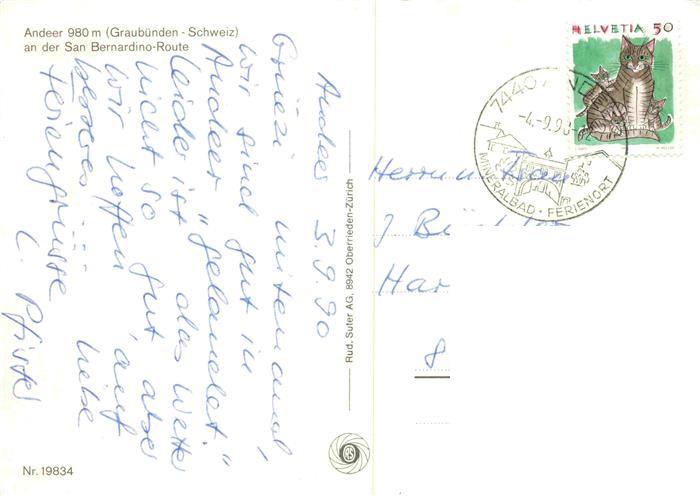 Andeer 980 m (Graubünden - Schweiz)
an der San Bernardino-Route
Andeer 3.9.90
Grüezi mitenand,
wir sind gut in
Andeer "gelandet".
Leider ist das Wetter
nicht so gut, aber
wir hoffen auf
besseres... Liebe
Feriengrüsse
C. Pfister
Nr. 19834
Rud. Suter AG, 8942 Oberrieden-Zürich
HELVETIA 50
7440 AN
-4.-9.90
MINERALBAD · FERIENORT
Herrn u. Frau
J. B
Har
8